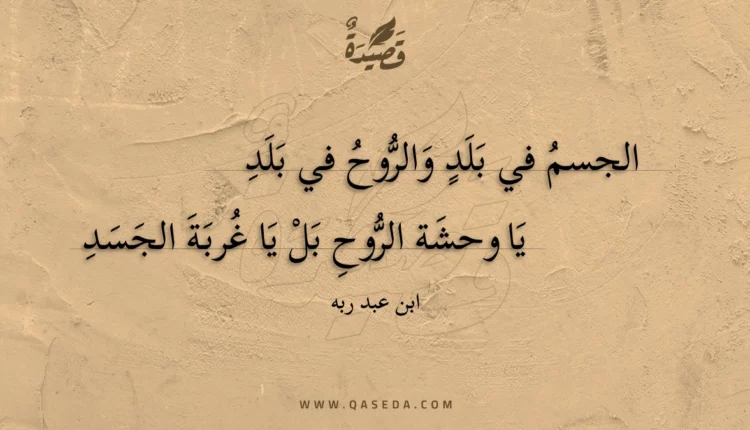 قَصِيْدَةٌ
الجسمُ في بَلَدٍ وَالرُّوحُ في بَلَدِ
يَا وحشَة الرُّوحِ بَلْ يَا غُربَةَ الجَسَدِ
ابن عبد ربه
WWW.QASEDA.COM